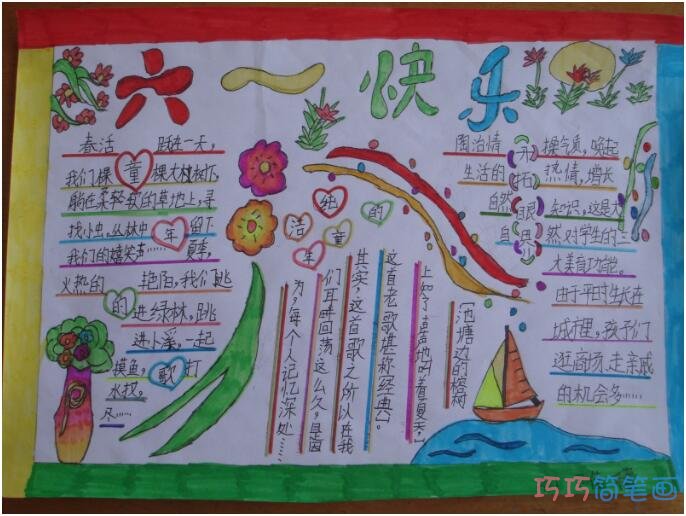 六一快乐
春活 跃在一天,
我们棵 童 棵大槐树下,
躺在柔轻软的草地上,寻
找小虫,丛林中 年 留下
我们的嬉笑声…… 夏季,
火热的 艳阳,我们跳
的 进绿林,跳
进小溪,一起
摸鱼, 歌 打
水仗。
尽……
纯洁的童年
[池塘边的榕树
上知了声声地叫着夏天。]
这首老歌堪称经典】。
其实,这首歌之所以在我
们耳畔回荡这么久,是因
为,每个人记忆深处……
开拓眼界
陶冶情 操气质,唤起
生活的 热情,增长
自然 知识,这是大
自 然对学生的三
大美育功能。
由于平时生长在
城市里,孩子们
逛商场、走亲戚
的机会多……
巧巧简笔画